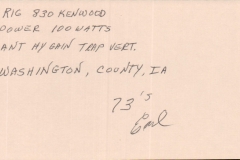 RIG 830 KENWOOD
POWER 100 WATTS
ANT HY GAIN TRAP VERT.
WASHINGTON, COUNTY, IA
73's
Earl